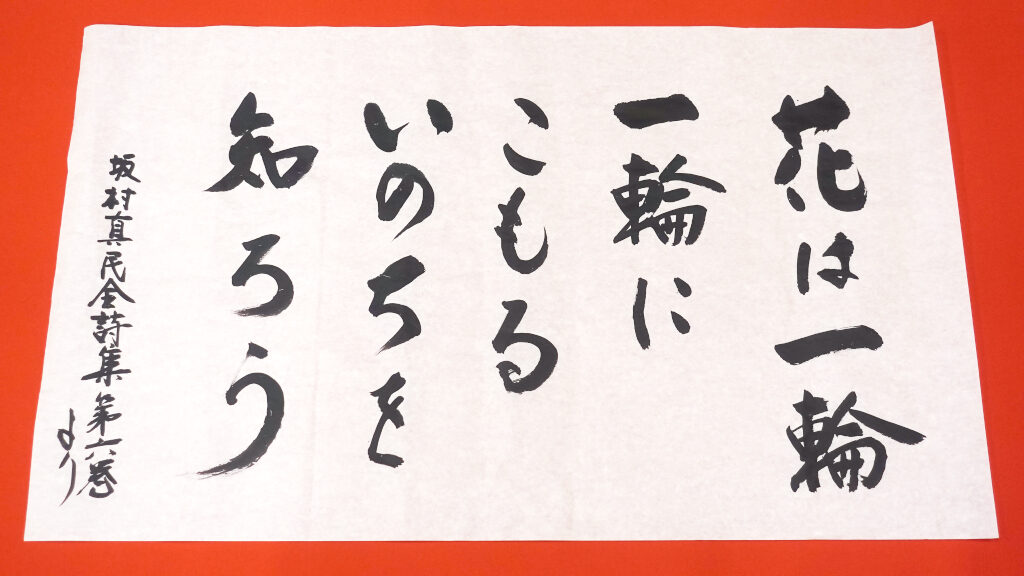 花は一輪
一輪に
こもる
いのちを
知ろう
坂村真民全詩集第六巻
より